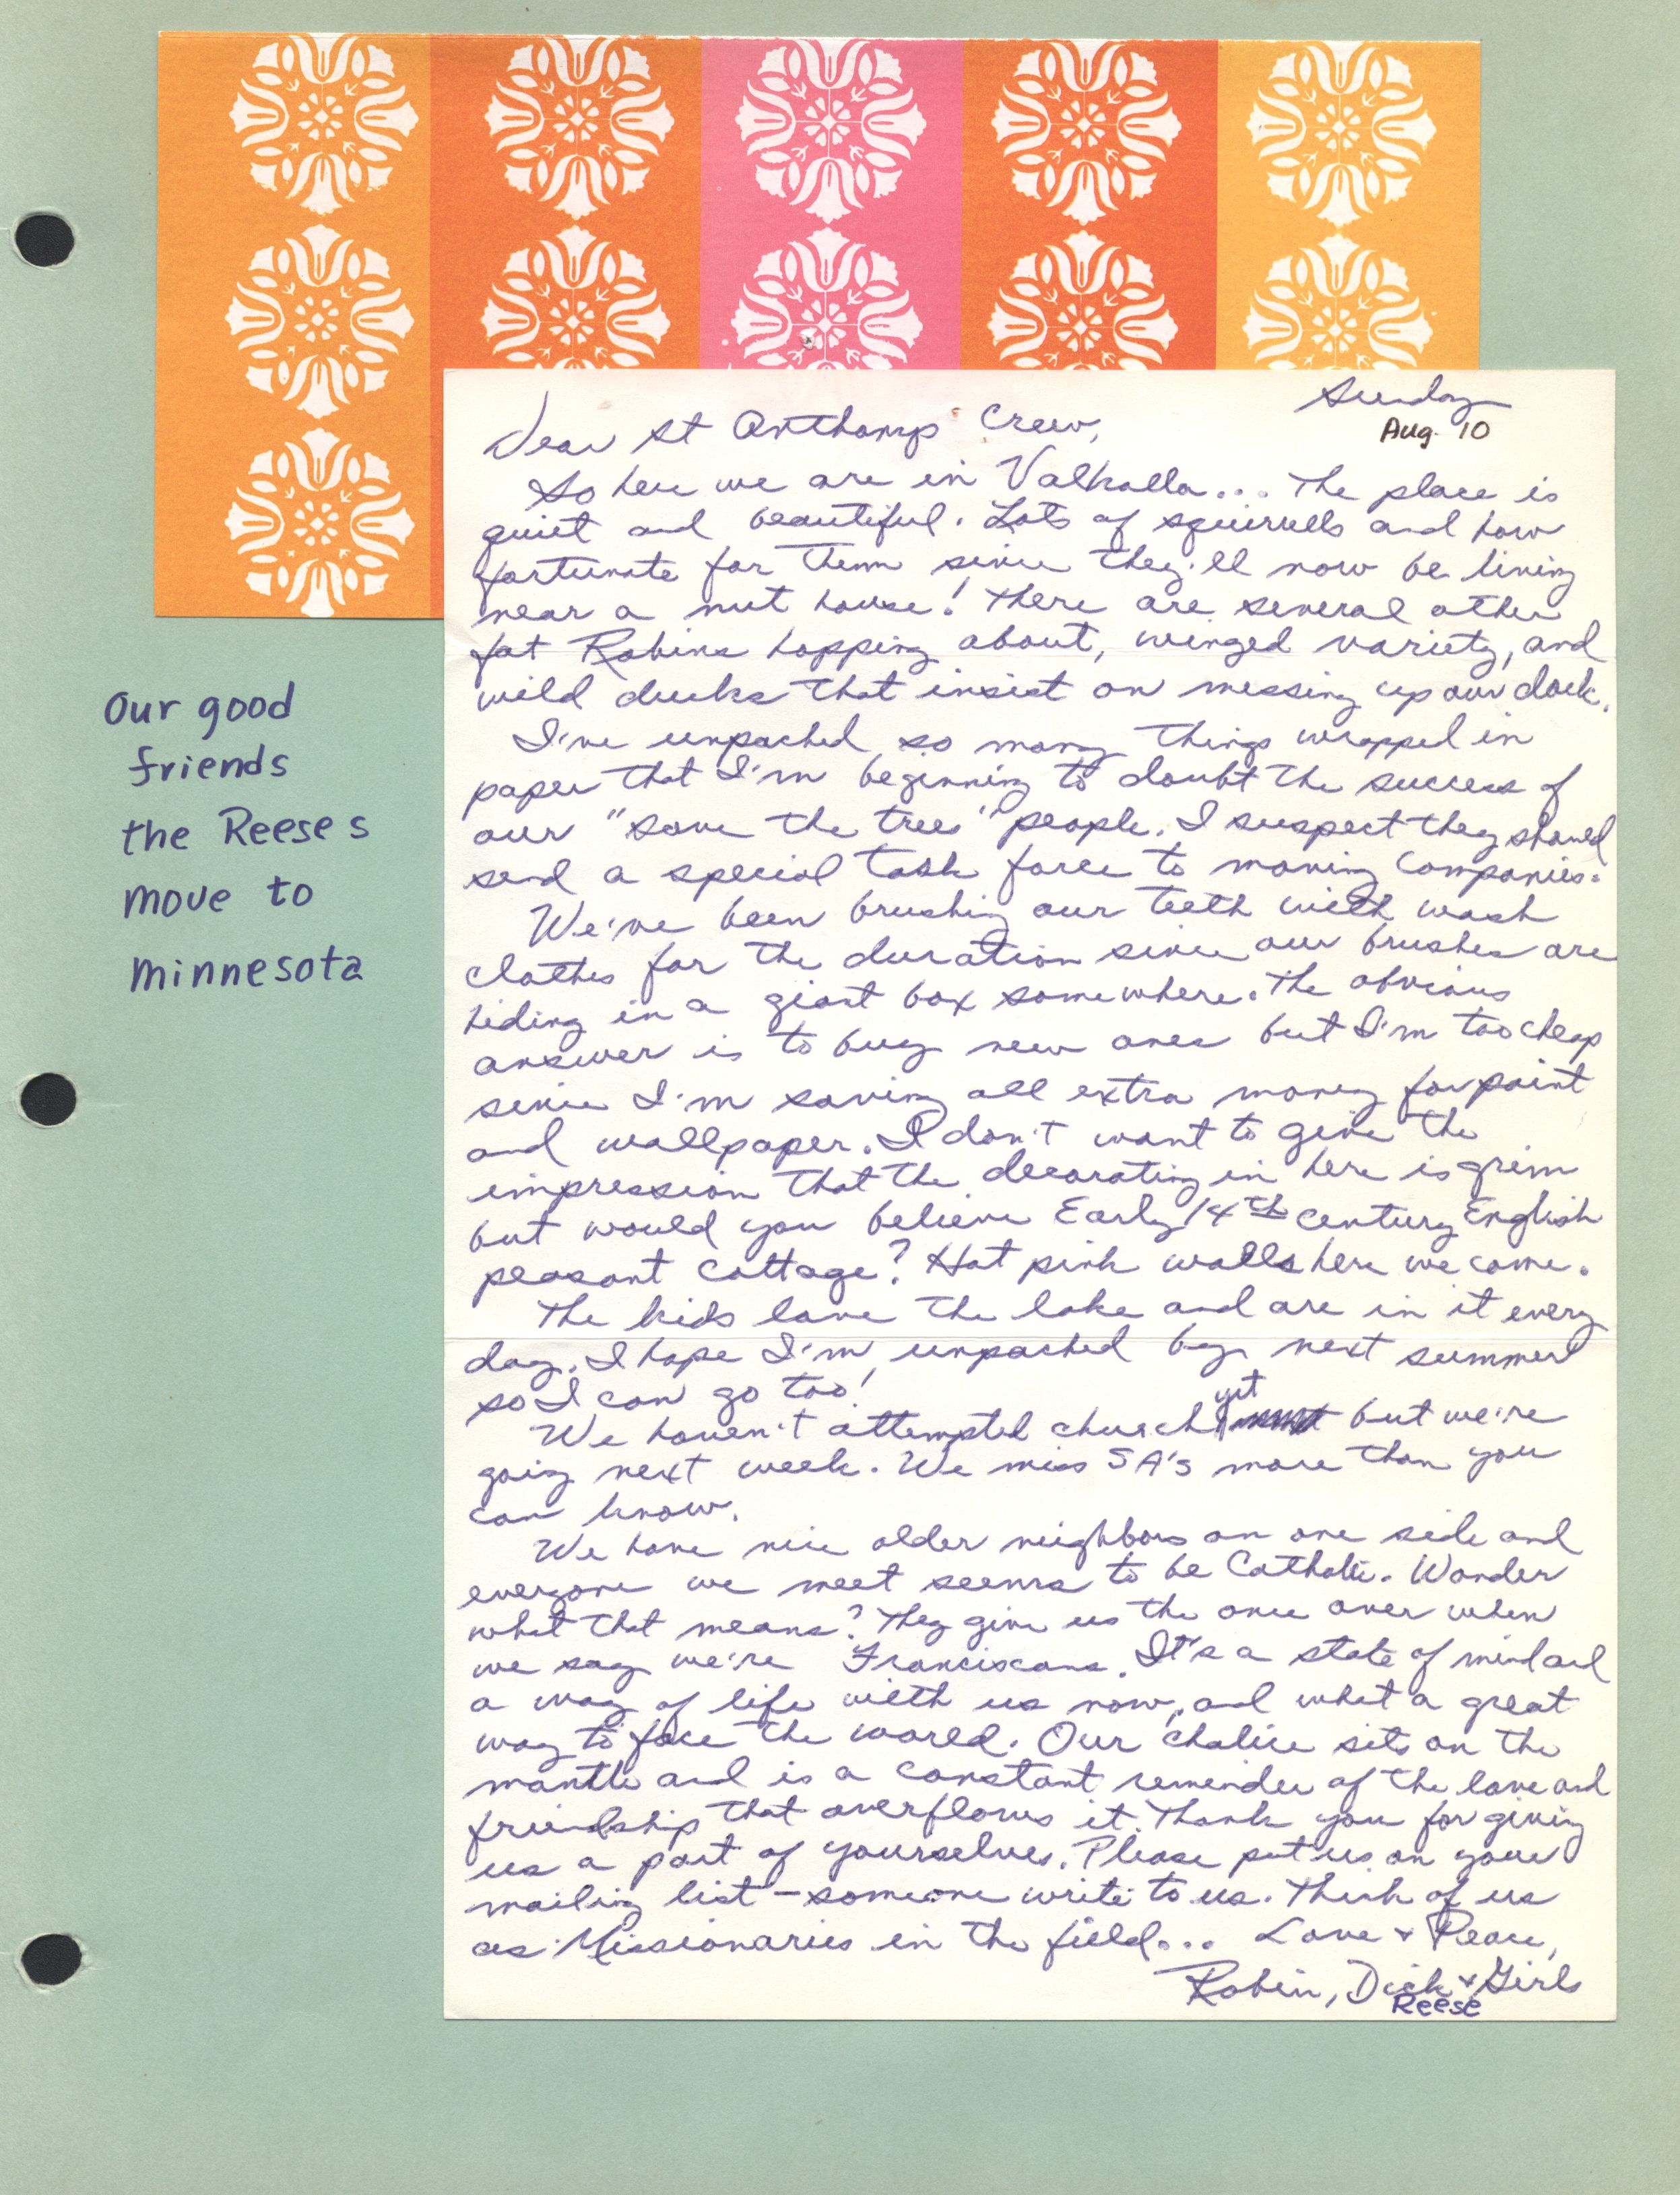 Our good
friends
the Reeses
move to
minnesota
Sunday
Aug. 10
Dear St Crew,
So here we are in Valhalla... The place is
quiet and beautiful. Lots of squirrells and how
fortunate for them since they'll now be living
near a nut house! There are several other
fat Robins hopping about, winged variety, and
wild ducks that insist on messing up our dock.
I've unpacked so many things wrapped in
paper that I'm beginning to doubt the success of
our "save the tree" people. I suspect they should
send a special task force to moving companies.
We've been brushing our teeth with wash
clothes for the duration since our brushes are
hiding in a giant box somewhere. The obvious
answer is to buy new ones but I'm too cheap
since I'm saving all extra money for paint
and wallpaper. I don't want to give the
impression that the decorating in here is grim
but would you believe Early 14th century English
peasant cottage? Hot pink walls here we come.
The kids love the lake and are in it every
day. I hope I'm unpacked by next summer
so I can go too!
We haven't attempted church yet but we're
going next week. We miss SA's more than you
can know.
We have nice older neighbors on one side and
everyone we meet seems to be Catholic. Wonder
what that means? They give us the once over when
we say we're Franciscans. It's a state of mind and
a way of life with us now, and what a great
way to face the world. Our chalice sits on the
mantle and is a constant reminder of the love and
friendship that overflows it. Thank you for giving
us a part of yourselves. Please put us on your
mailing list - someone write to us. Think of us
as Missionaries in the field... Love & Peace,
Robin, Dick & Girls
Reese